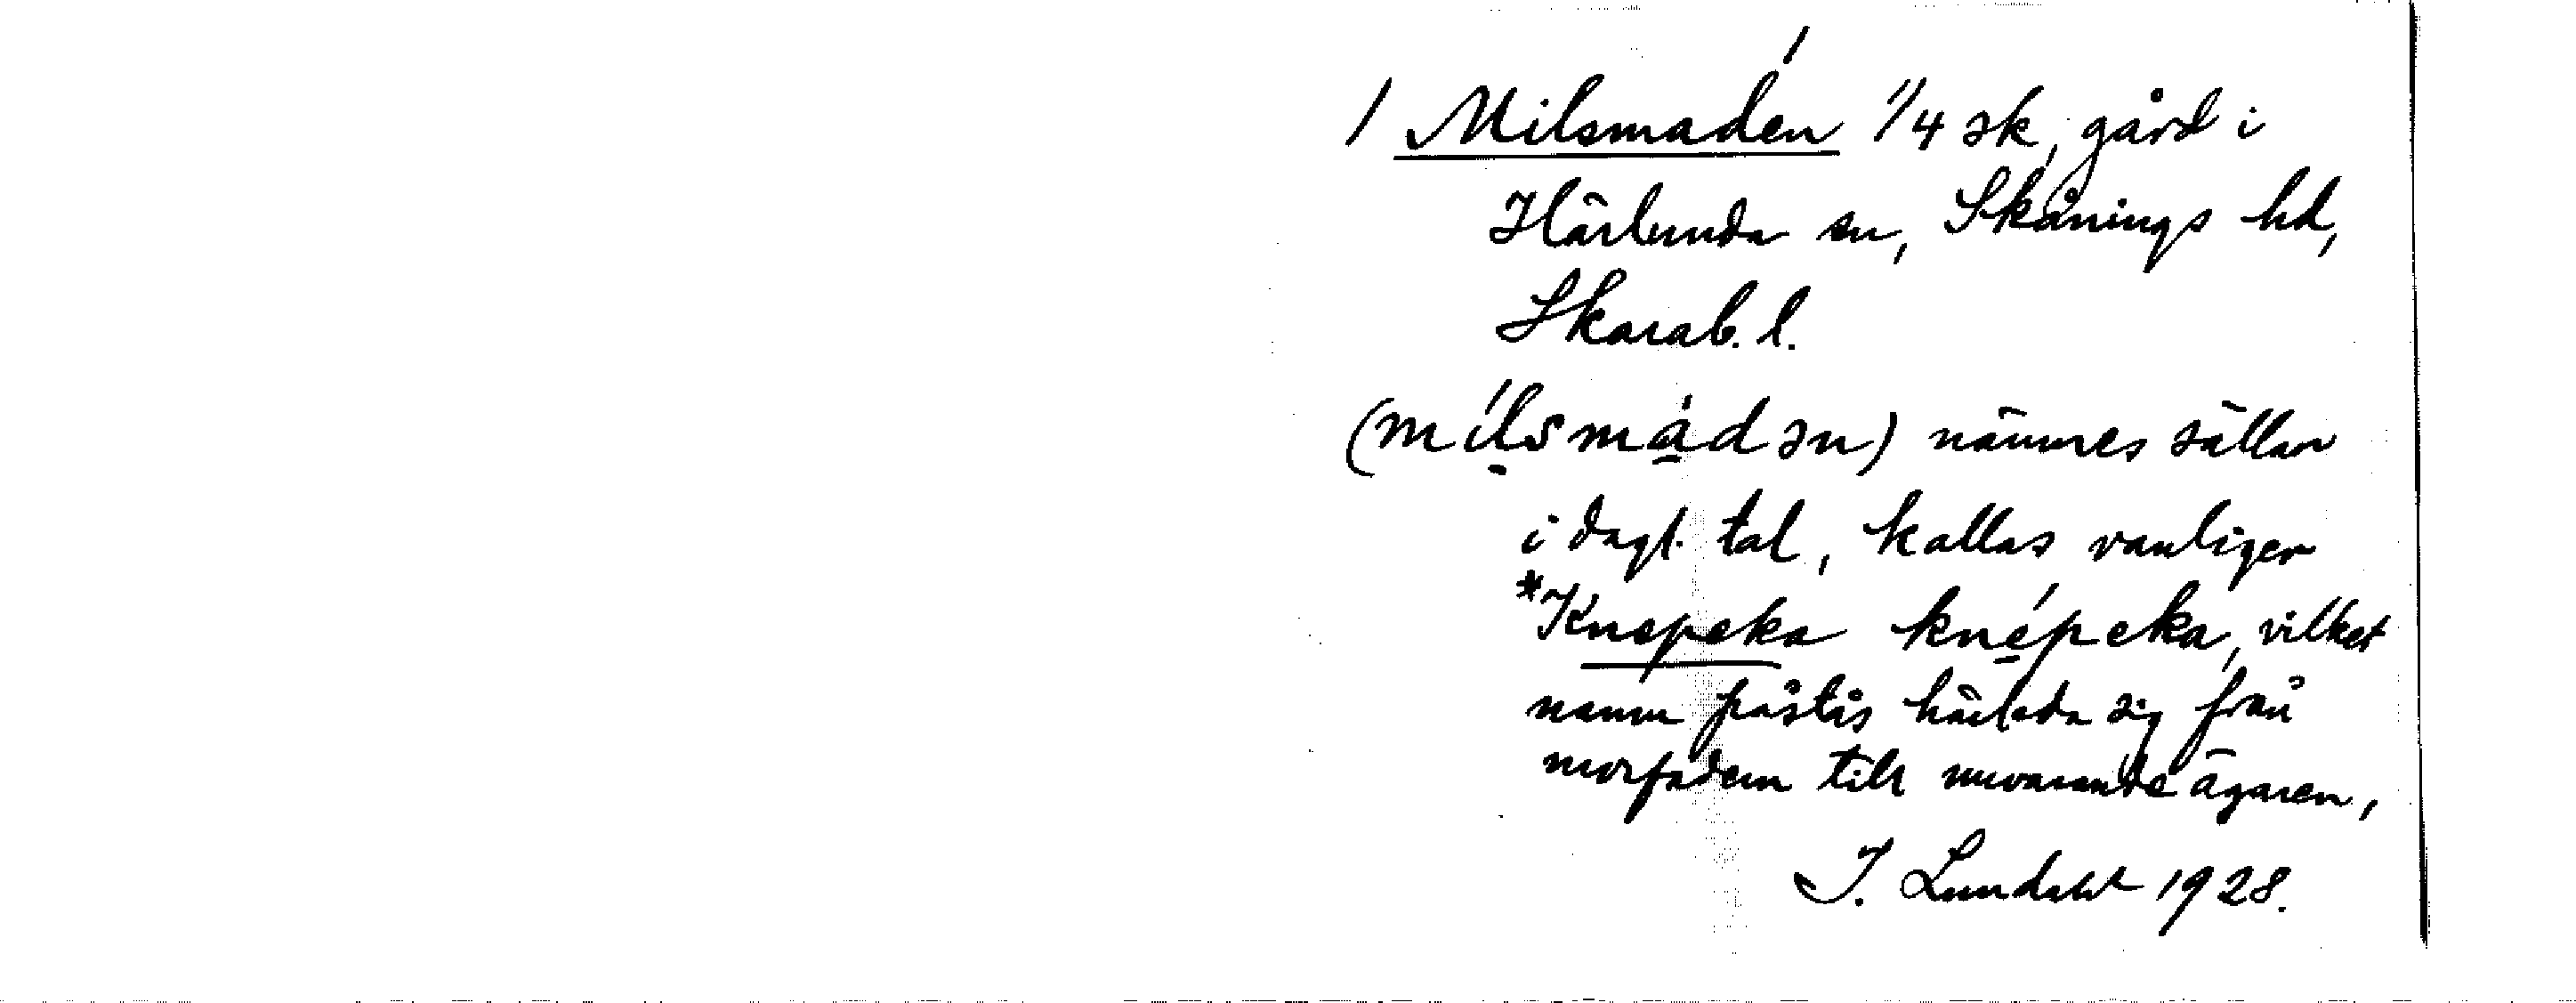 / Milsmaden 1/4 sk, gård i
Härlunda sn, Skånings hd,
Skarab. l.
(mílsmàdən) nämnes sällan
i dagl. tal, kallas vanligen
*Knepeka knépeka, vilket
namn påstås härleda sig från
morfadern till nuvarande ägaren,
I. Lundahl 1928.